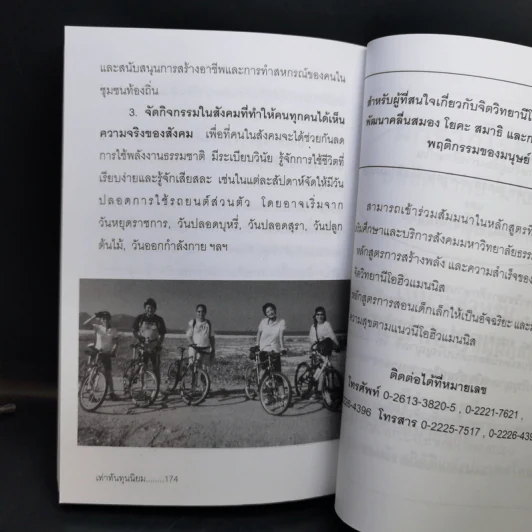 และสนับสนุนการสร้างอาชีพและการทำสหกรณ์ของคนใน
ชุมชนท้องถิ่น
3. จัดกิจกรรมในสังคมที่ทำให้คนทุกคนได้เห็น
ความจริงของสังคม เพื่อที่คนในสังคมจะได้ช่วยกันลด
การใช้พลังงานธรรมชาติ มีระเบียบวินัย รู้จักการใช้ชีวิตที่
เรียบง่ายและรู้จักเสียสละ เช่นในแต่ละสัปดาห์จัดให้มีวัน
ปลอดการใช้รถยนต์ส่วนตัว โดยอาจเริ่มจาก
วันหยุดราชการ, วันปลอดบุหรี่, วันปลอดสุรา, วันปลูก
ต้นไม้, วันออกกำลังกาย ฯลฯ
เท่าทันทุนนิยม........174
สำหรับผู้ที่สนใจเกี่ยวกับจิตวิทยานีโ
พัฒนาคลื่นสมอง โยคะ สมาธิ และก
พฤติกรรมของมนุษย์
สามารถเข้าร่วมสัมมนาในหลักสูตรที่
บัณฑิตศึกษาและบริการสังคมมหาวิทยาลัยธรร
หลักสูตรการสร้างพลัง และความสำเร็จของ
จิตวิทยานีโอฮิวแมนนิส
หลักสูตรการสอนเด็กเล็กให้เป็นอัจฉริยะ และ
ความสุขตามแนวนีโอฮิวแมนนิส
ติดต่อได้ที่หมายเลข
โทรศัพท์ 0-2613-3820-5 , 0-2221-7621 ,
226-4396 โทรสาร 0-2225-7517 , 0-2226-439